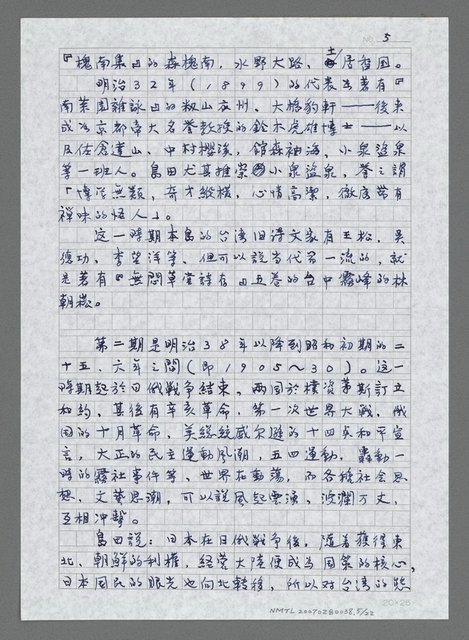 No. 5
『槐南集』的森槐南,水野大路、土居香国。
明治32年(1899)的代表為著有『
南菜園雜詠』的籾山衣州、大橋豹軒——後來
成為京都帝大名誉教授的鈴木虎雄博士——以
及佐倉達山、中村櫻溪、館森袖海、小泉盜泉
等一班人。島田尤其推崇小泉盜泉,譽之謂
「博學無類,奇才縱橫,心情高潔,徹底帶有
禅味的怪人」。
這一時期本島的台湾旧詩文家有王松,吳
德功,李望洋等、但可以說当代另一流的,就
是著有『無悶草堂詩存』五卷的台中霧峰的林
朝崧。
第二期是明治38年以降到昭和初期的二
十五、六年之間(即1905~30)。這一
時期起於日俄戰争結束,兩国於樸資茅斯訂立
和約,其後有辛亥革命,第一次世界大戰,俄
国的十月革命,美總統威尔遜的十四点和平宣
言,大正的民主運動風潮,五四運動,轟動一
時的霧社事件等、世界在動蕩,而各種社会思
想,文藝思潮,可以說風起雲湧,波瀾万丈,
互相冲擊。
島田說:日本在日俄戰争後,隨著獲得東
北、朝鮮的利權,経営大陸便成為国策的核心,
日本国民的眼光也向北轉移,所以对台湾的態
20×25
NMTL20070280038,5/22